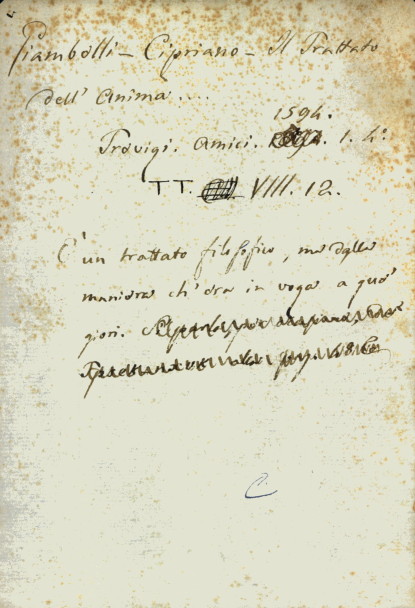 Giambelli - Cipriano - Il Trattato
dell' Anima....
1594.
Trevigi. Amici. 1. 4°.
TT. VIII. 12.
È un trattato filosofico, ma della
maniera ch' era in voga a que'
giorni.
C.